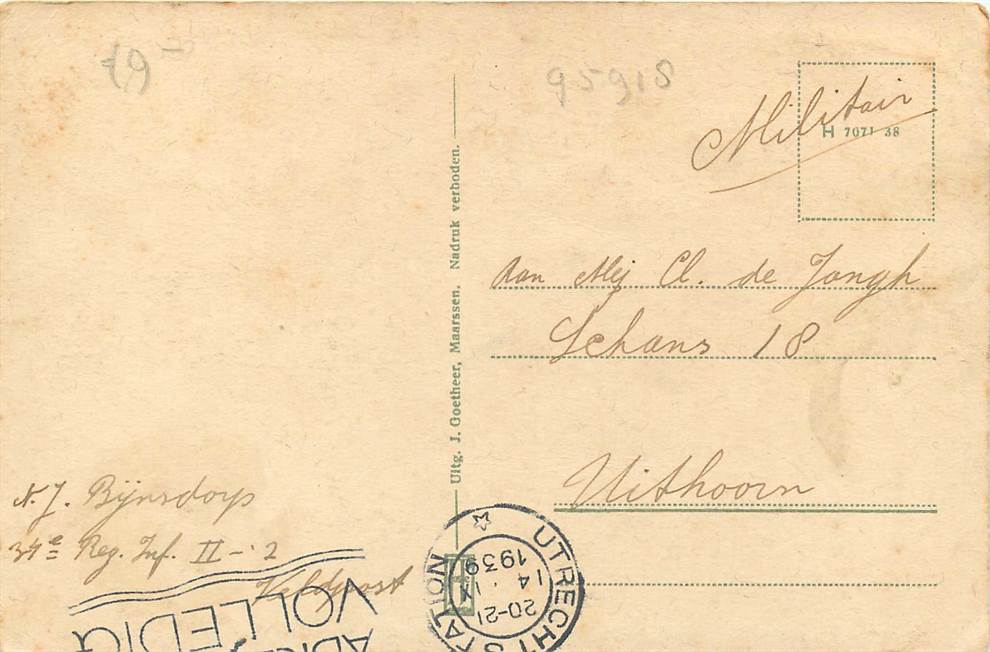 79-
95918
Militair
H 7071 38
Aan Mej Cl. de Jongh
Schans 18
Uithoorn
Uitg. J. Goetheer, Maarssen. Nadruk verboden.
N. J. Bijnsdorp
34e Reg. Inf. II - 2
Veldpost
VOLLEDIG
UTRECHT STATION
20-21
14 IX
1939
H